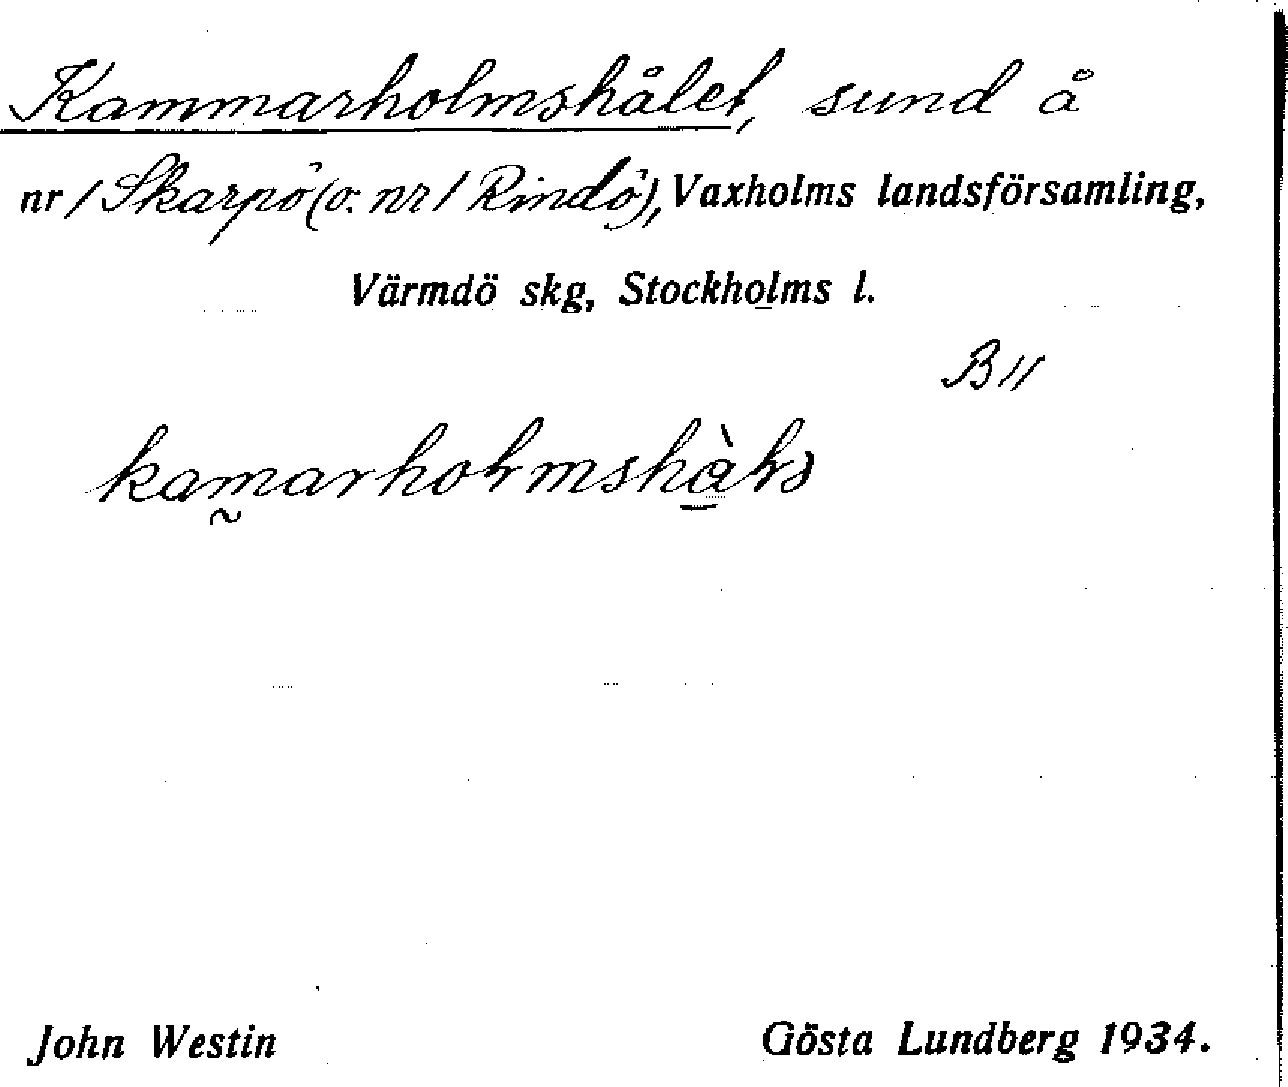 Kammarholmshålet, sund å
nr 1 Skarpö (o. nr 1 Rindö), Vaxholms landsförsamling,
Värmdö skg, Stockholms l.
B 11
John Westin
Gösta Lundberg 1934.